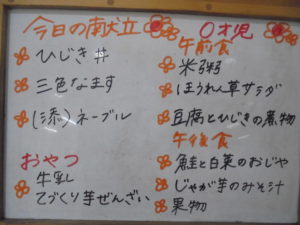 今日の献立
ひじき丼
三色なます
(添)ネーブル
おやつ
牛乳
てづくり芋ぜんざい
0才児
午前食
米粥
ほうれん草サラダ
豆腐とひじきの煮物
午後食
鮭と白菜のおじや
じゃが芋のみそ汁
果物